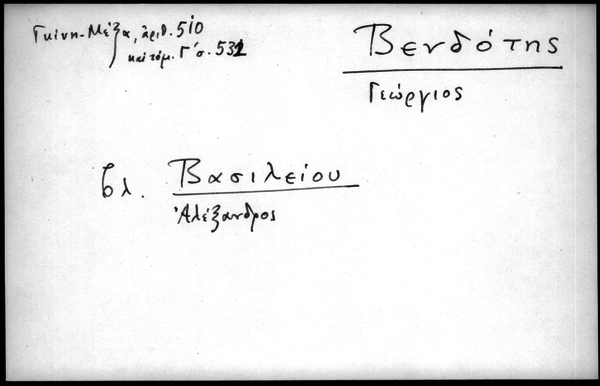 Γκίνη-Μέξα, ἀριθ. 510
καὶ τόμ. Γ' σ. 532
Βενδότης
Γεώργιος
βλ. Βασιλείου
Ἀλέξανδρος